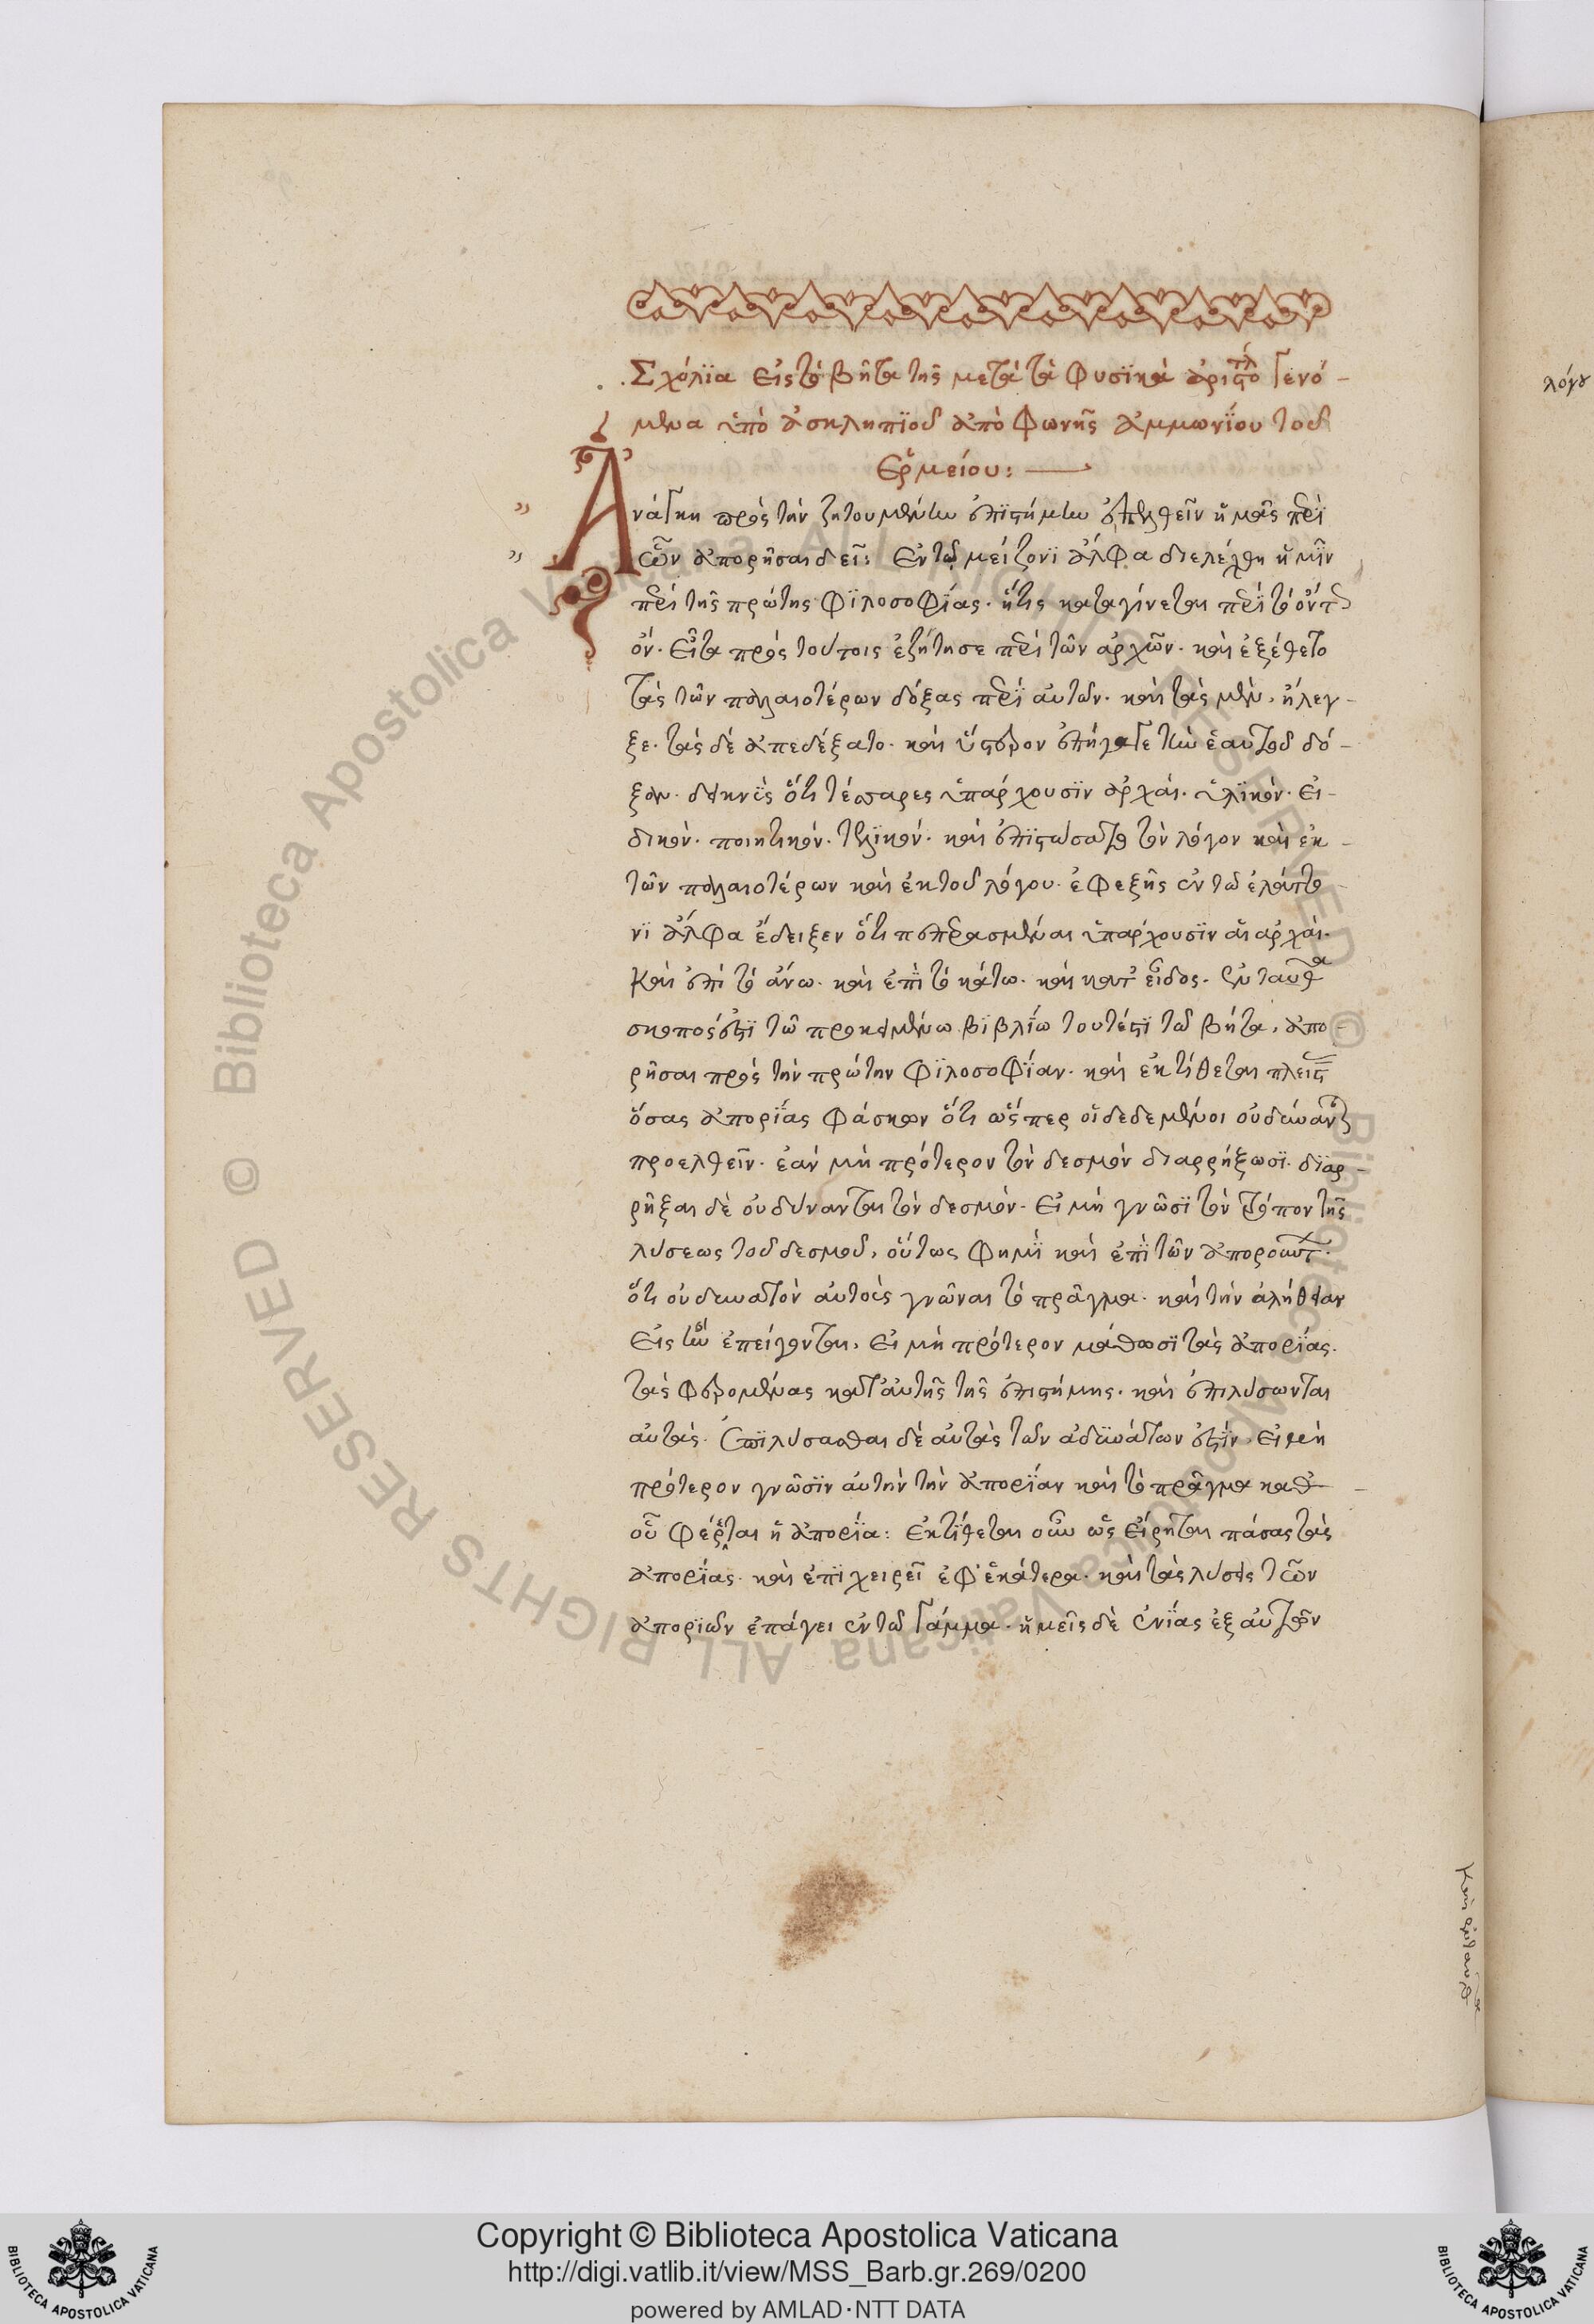 Σχόλϊα εἰς τὸ βῆτα τῆς μετὰ τὰ φυσϊκὰ ἀριστοτλ γενό-
μενα ὑπὸ ἀσκληπϊοῦ ἀπὸ φωνῆς ἀμμωνΐου τοῦ
ἑρμείου:
Ἀνάγκη πρὸς τὴν ζητουμένην ἐπϊστήμην ἐπελθεῖν ἡμᾶς περὶ
ὧν ἀπορῆσαι δεῖ: Ἐν τῷ μείζονϊ ἄλφα διελέχθη ἡμῖν
περὶ τῆς πρώτης φϊλοσοφΐας. ἥτις καταγίνεται περὶ τὸ ὄντως
ὄν. Εἶτα πρὸς τούτοις ἐζήτησε περὶ τῶν ἀρχῶν. καὶ ἐξέθετο
τὰς τῶν παλαιοτέρων δόξας περὶ αὐτῶν. καὶ τὰς μὲν, ἤλεγ-
ξε. τὰς δὲ ἀπεδέξατο. καὶ ὕστερον ἐπήγαγε τὴν ἑαυτοῦ δό-
ξαν. δεικνὺς ὅτι τέσσαρες ὑπάρχουσϊν ἀρχάι. ὑλϊκὸν. εἰ-
δικὸν. ποιητικόν. τελϊκόν. καὶ ἐπϊστώσατο τὸν λόγον καὶ ἐκ
τῶν παλαιοτέρων καὶ ἐκ τοῦ λόγου. ἐφεξῆς ἐν τῷ ἐλάττο-
νϊ ἄλφα ἔδειξεν ὅτι πεπερασμέναι ὑπάρχουσϊν αἱ ἀρχάι.
Καὶ ἐπὶ τὸ ἄνω. καὶ ἐπὶ τὸ κάτω. καὶ κατ' εἶδος. Ἐνταῦθα
σκοπός ἐστϊ τῶ προκειμένω βϊβλΐω τουτέστϊ τῶ βῆτα, ἀπο-
ρῆσαι πρὸς τὴν πρώτην φϊλοσοφΐαν. καὶ ἐκτίθεται πλείστ
ὅσας ἀπορΐας φάσκων ὅτι ὥσπερ οἱ δεδεμένοι οὐ δύνανται
προελθεῖν. ἐάν μὴ πρότερον τὸν δεσμὸν διαρρήξωσϊ. δϊαρ-
ρῆξαι δὲ οὐ δύνανται τὸν δεσμὸν. Εἰ μὴ γνῶσϊ τὸν τόπον τῆς
λύσεως τοῦ δεσμοῦ, οὕτως φημῒ καὶ ἐπὶ τῶν ἀπορούντων.
ὅτι οὐ δυνατὸν αὐτοὶς γνῶναι τὸ πρᾶγμα. καὶ τὴν ἀλήθειαν
Εἰς ἣν ἐπείγονται, εἰ μὴ πρότερον μάθωσϊ τὰς ἀπορΐας.
τὰς φερομένας κατ' αὐτῆς τῆς ἐπιστήμης. καὶ ἐπιλύσωνται
αὐτάς. Ἐπϊλύσασθαι δὲ αὐτὰς τῶν ἀδυνάτων ἐστϊν. εἰ μὴ
πρότερον γνῶσϊν αὐτὴν τὴν ἀπορΐαν καὶ τὸ πρᾶγμα καθ'
οὗ φέρεται ἡ ἀπορΐα: Ἐκτϊθεται οὖν ὡς εἴρηται πάσας τὰς
ἀπορΐας. καὶ ἐπϊχειρεῖ ἐφ' ἑκάτερα. καὶ τὰς λύσεις τῶν
ἀπορϊῶν ἐπάγει ἐν τῶ Γάμμα. ἡμεῖς δὲ ἐνΐας ἐξ αὐτῶν
καὶ ἐνταῦθα
λόγου
Copyright © Biblioteca Apostolica Vaticana
http://digi.vatlib.it/view/MSS_Barb.gr.269/0200
powered by AMLAD·NTT DATA
BIBLIOTECA APOSTOLICA VATICANA
BIBLIOTECA APOSTOLICA VATICANA
© Biblioteca Apostolica Vaticana ALL RIGHTS RESERVED
© Biblioteca Apostolica Vaticana ALL RIGHTS RESERVED